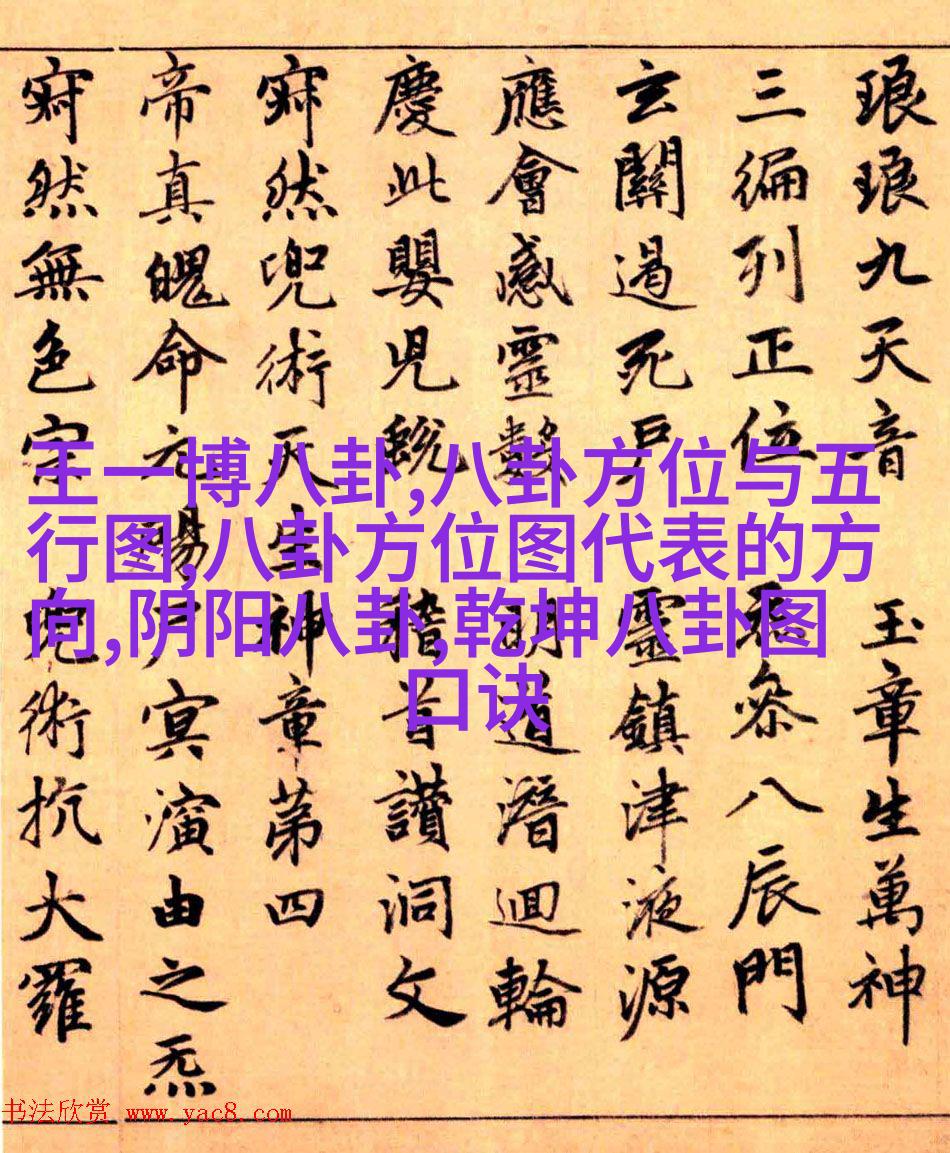 琅琅九天音玉章生萬神
三徧列正位叅八辰門
玄關遏死戶靈鎮津液源
應會感靈數明道潛迴輪
慶此嬰兒蛻稽首讚洞文
寂然兜術天生神章第四
帝真魄命元冥演由之炁
寂然無色宗兜術抗大羅
王一博八卦,八卦方位与五
行图,八卦方位图代表的方
向,阴阳八卦,乾坤八卦图
口诀
书法欣赏 www.yac8.com